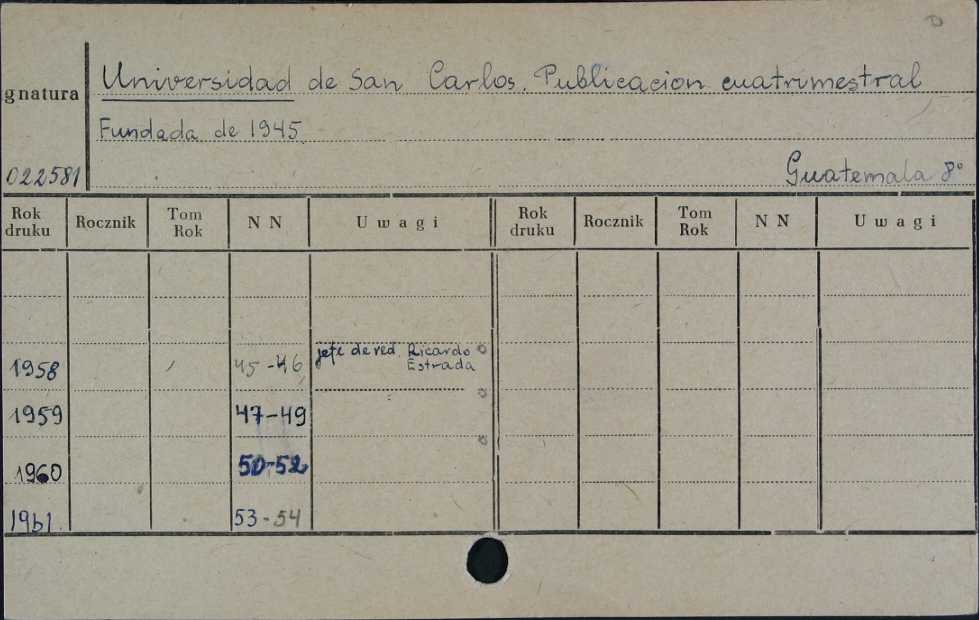 D
Universidad de San Carlos. Publicacion cuatrimestral
gnatura
Fundada de 1945
022581
Guatemala 8°
Rok druku Rocznik Tom Rok N N U w a g i Rok druku Rocznik Tom Rok N N U w a g i
1958 45-46 jefe de red. Ricardo Estrada
1959 47-49
1960 50-52
1961. 53-54